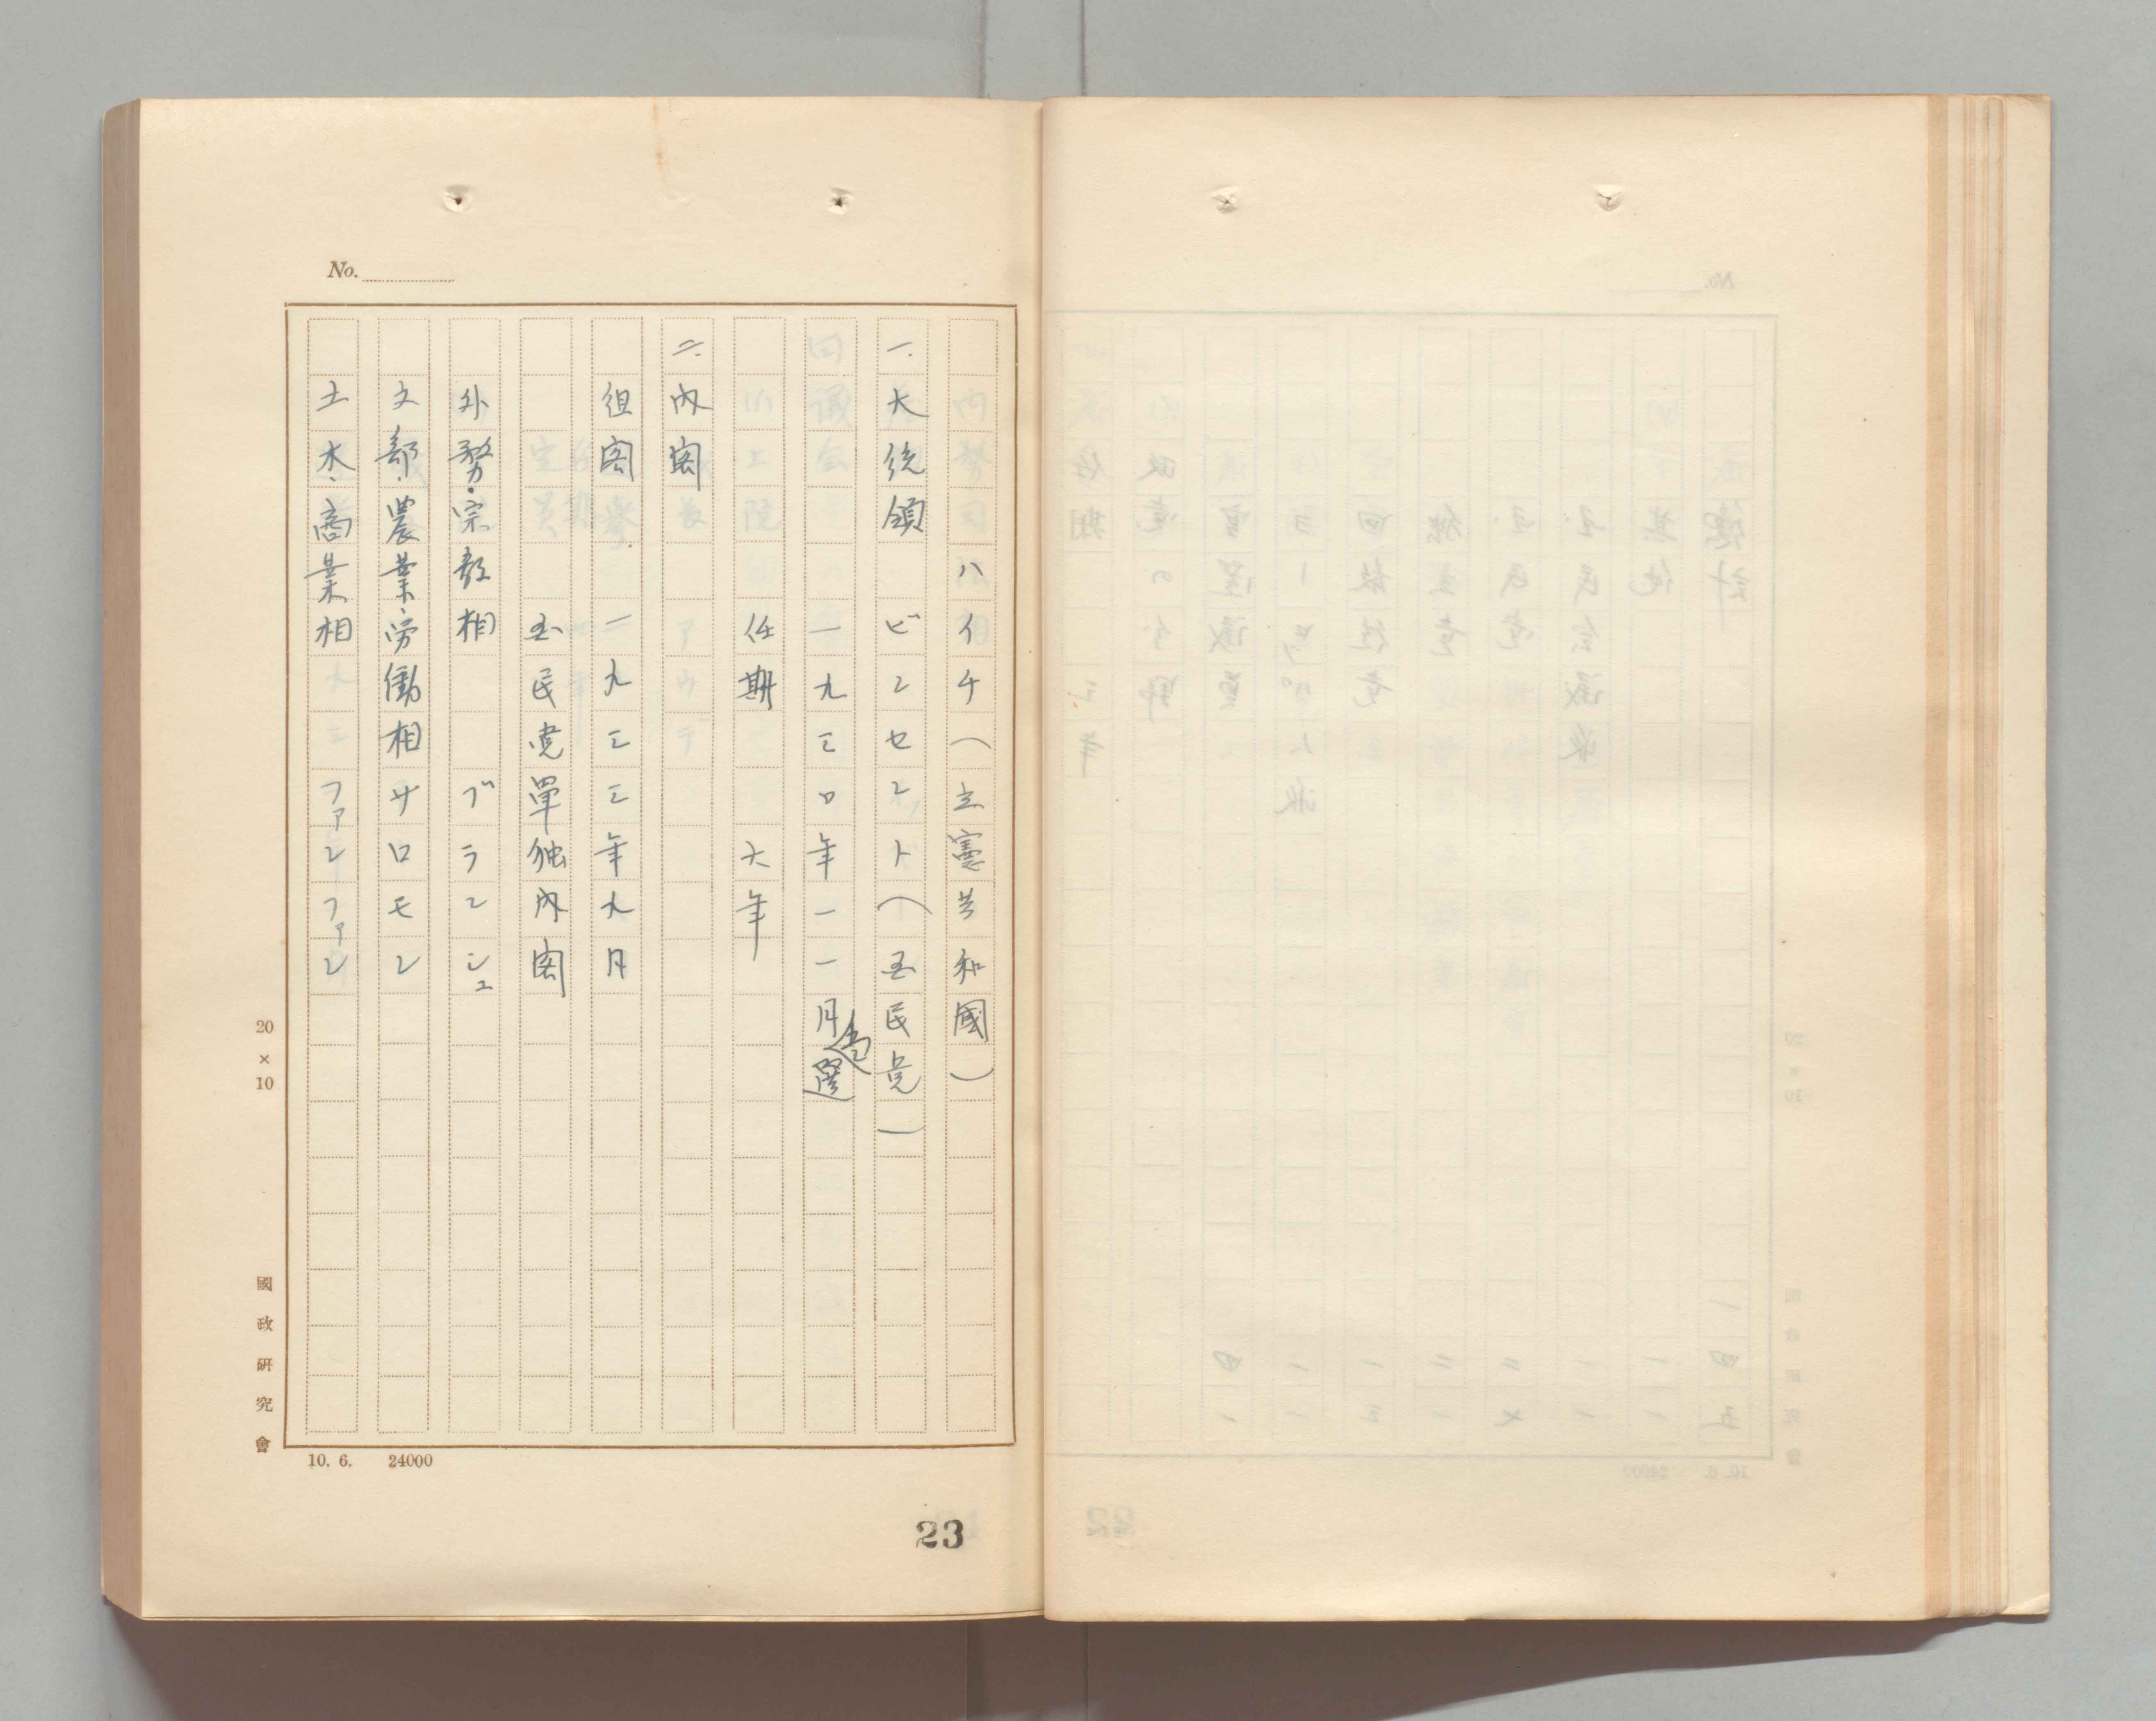 No.
ハイチ(立憲共和國)
一.大統領 ビンセント(国民党)
一九三〇年一一月当選
任期 六年
二.内閣
組閣 一九三三年九月
国民党單独内閣
外務・宗教相 ブランシュ
文部・農業・労働相 サロモン
土木・商業相 ファンファン
20×10
國政研究會
10. 6. 24000
23